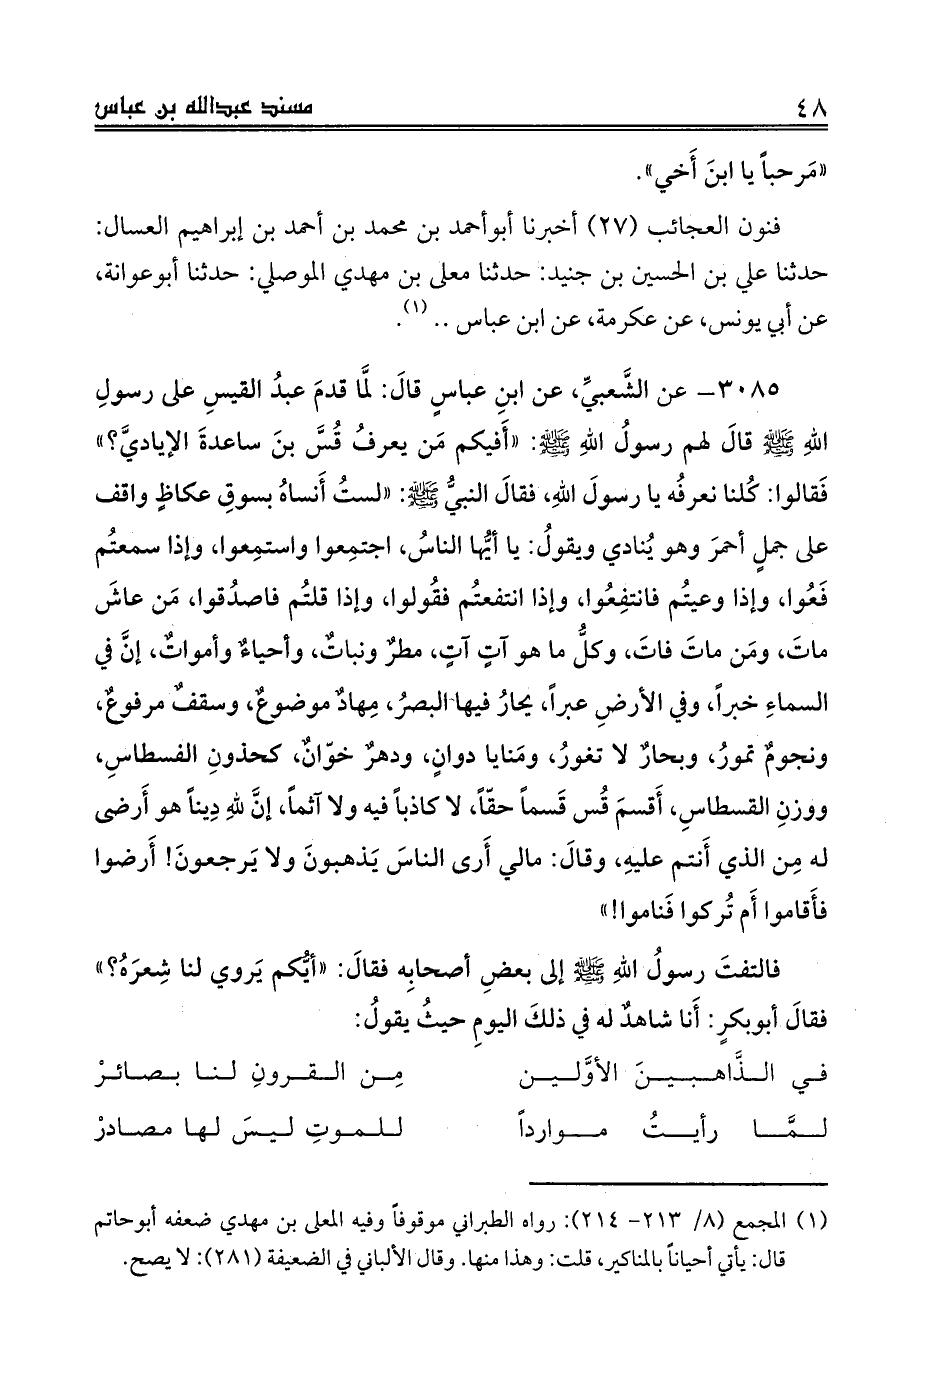 ٤٨ مسند عبدالله بن عباس
«مَرحباً يا ابنَ أَخي».
فنون العجائب (٢٧) أخبرنا أبوأحمد بن محمد بن أحمد بن إبراهيم العسال:
حدثنا علي بن الحسين بن جنيد: حدثنا معلى بن مهدي الموصلي: حدثنا أبوعوانة،
عن أبي يونس، عن عكرمة، عن ابن عباس .. (١).
٣٠٨٥- عن الشَّعبيِّ، عن ابنِ عباسٍ قالَ: لمَّا قدمَ عبدُ القيسِ على رسولِ
اللهِ ﷺ قالَ لهم رسولُ اللهِ ﷺ: «أَفيكم مَن يعرفُ قُسَّ بنَ ساعدةَ الإياديَّ؟»
فَقالوا: كُلنا نعرفُه يا رسولَ اللهِ، فقالَ النبيُّ ﷺ: «لستُ أَنساهُ بسوقِ عكاظٍ واقف
على جملٍ أحمرَ وهو يُنادي ويقولُ: يا أيُّها الناسُ، اجتمِعوا واستمِعوا، وإذا سمعتُم
فَعُوا، وإذا وعيتُم فانتفِعُوا، وإذا انتفعتُم فقُولوا، وإذا قلتُم فاصدُقوا، مَن عاشَ
ماتَ، ومَن ماتَ فاتَ، وكلُّ ما هو آتٍ آتٍ، مطرٌ ونباتٌ، وأحياءٌ وأمواتٌ، إنَّ في
السماءِ خبراً، وفي الأرضِ عبراً، يحارُ فيها البصرُ، مِهادٌ موضوعٌ، وسقفٌ مرفوعٌ،
ونجومٌ تمورُ، وبحارٌ لا تغورُ، ومَنايا دوانٍ، ودهرٌ خوّانٌ، كحذونِ الفسطاسِ،
ووزنِ القسطاسِ، أَقسمَ قُس قَسماً حقّاً، لا كاذباً فيه ولا آثماً، إنَّ للهِ دِيناً هو أَرضى
له مِن الذي أَنتم عليهِ، وقالَ: مالي أَرى الناسَ يَذهبونَ ولا يَرجعونَ! أَرضوا
فأَقاموا أَم تُركوا فَناموا!»
فالتفتَ رسولُ اللهِ ﷺ إلى بعضِ أصحابِه فقالَ: «أيُّكم يَروي لنا شِعرَهُ؟»
فقالَ أبوبكرٍ: أَنا شاهدٌ له في ذلكَ اليومِ حيثُ يقولُ:
في الذَّاهبينَ الأوَّلين مِن القرونِ لنا بصائرْ
لمَّا رأيتُ موارداً للموتِ ليسَ لها مصادرْ
(١) المجمع (٨/ ٢١٣- ٢١٤): رواه الطبراني موقوفاً وفيه المعلى بن مهدي ضعفه أبوحاتم
قال: يأتي أحياناً بالمناكير، قلت: وهذا منها. وقال الألباني في الضعيفة (٢٨١): لا يصح.